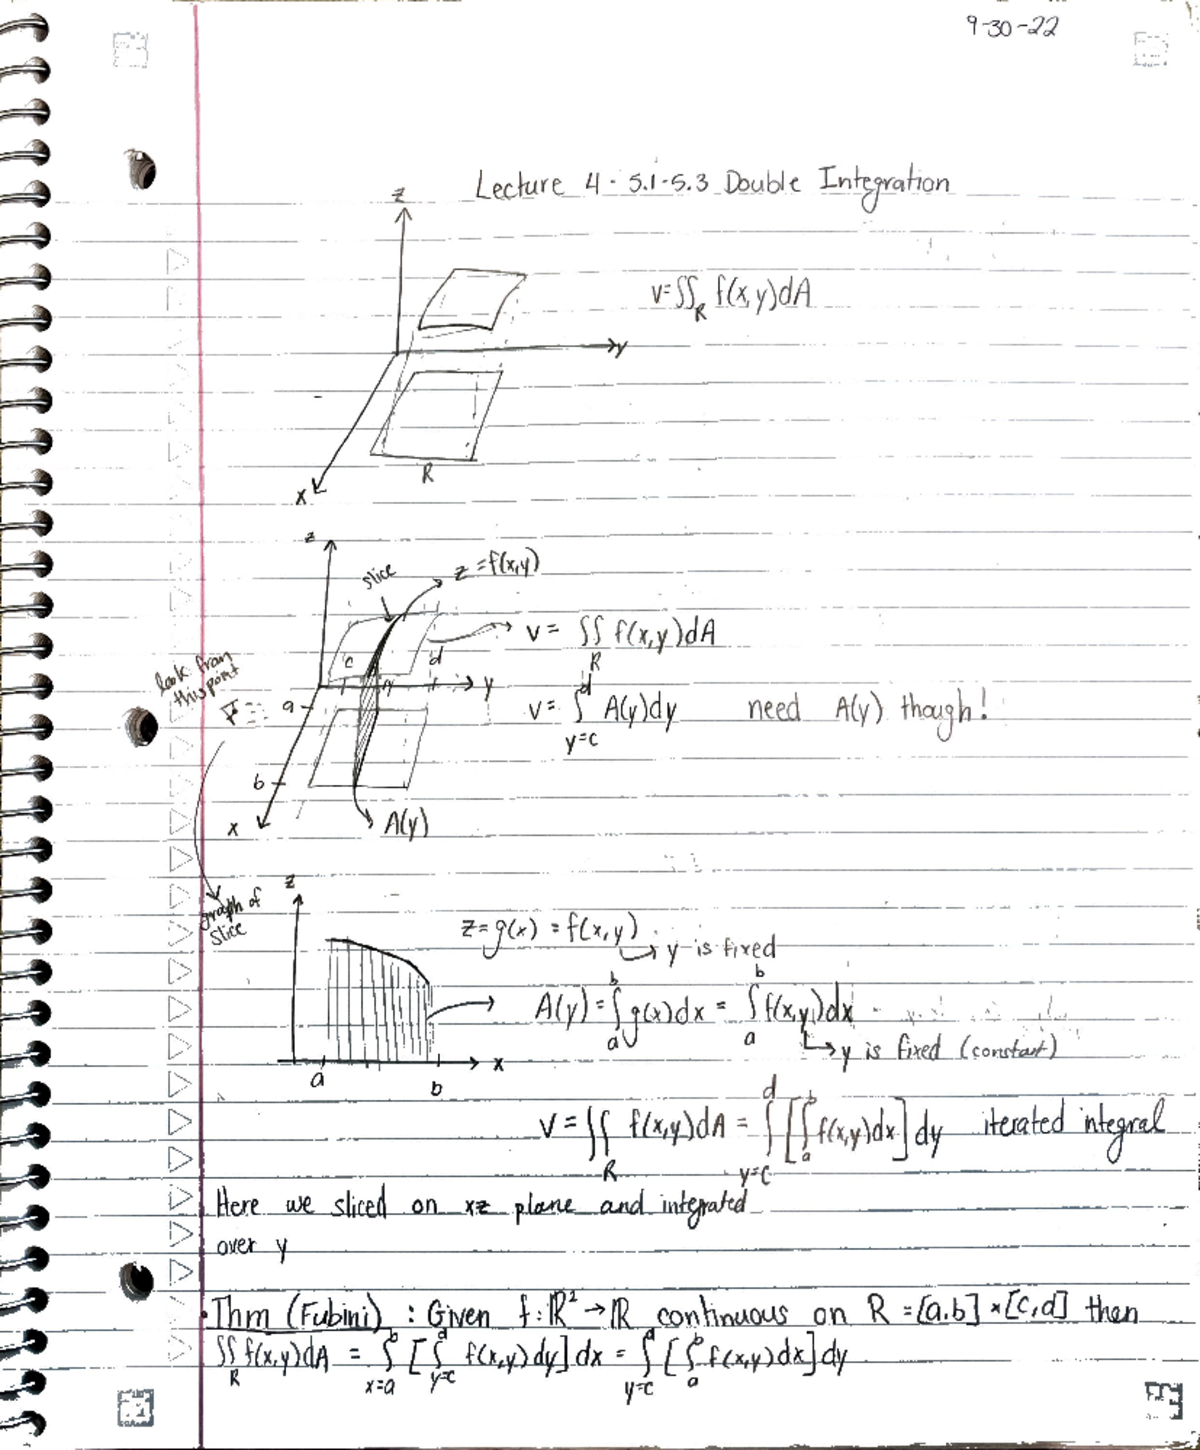 9-30-22
Lecture 4 - 5.1-5.3 Double Integration
z
v=∬_R f(x,y)dA
y
R
x
z
slice
z=f(x,y)
v= ∬_R f(x,y)dA
c
d
look from
this point
y
a
v= ∫_{y=c}^d A(y)dy need A(y) though!
b
x
A(y)
z
graph of
slice
z=g(x) = f(x,y)
y is fixed
A(y) = ∫_a^b g(x)dx = ∫_a^b f(x,y)dx
y is fixed (constant)
x
a
b
V = ∬_R f(x,y)dA = ∫_{y=c}^d [∫_a^b f(x,y)dx] dy iterated integral
Here we sliced on xz plane and integrated
over y
• Thm (Fubini) : Given f: ℝ² → ℝ continuous on R = [a,b] × [c,d] then
∬_R f(x,y)dA = ∫_{x=a}^b [∫_{y=c}^d f(x,y)dy] dx = ∫_{y=c}^d [∫_a^b f(x,y)dx] dy